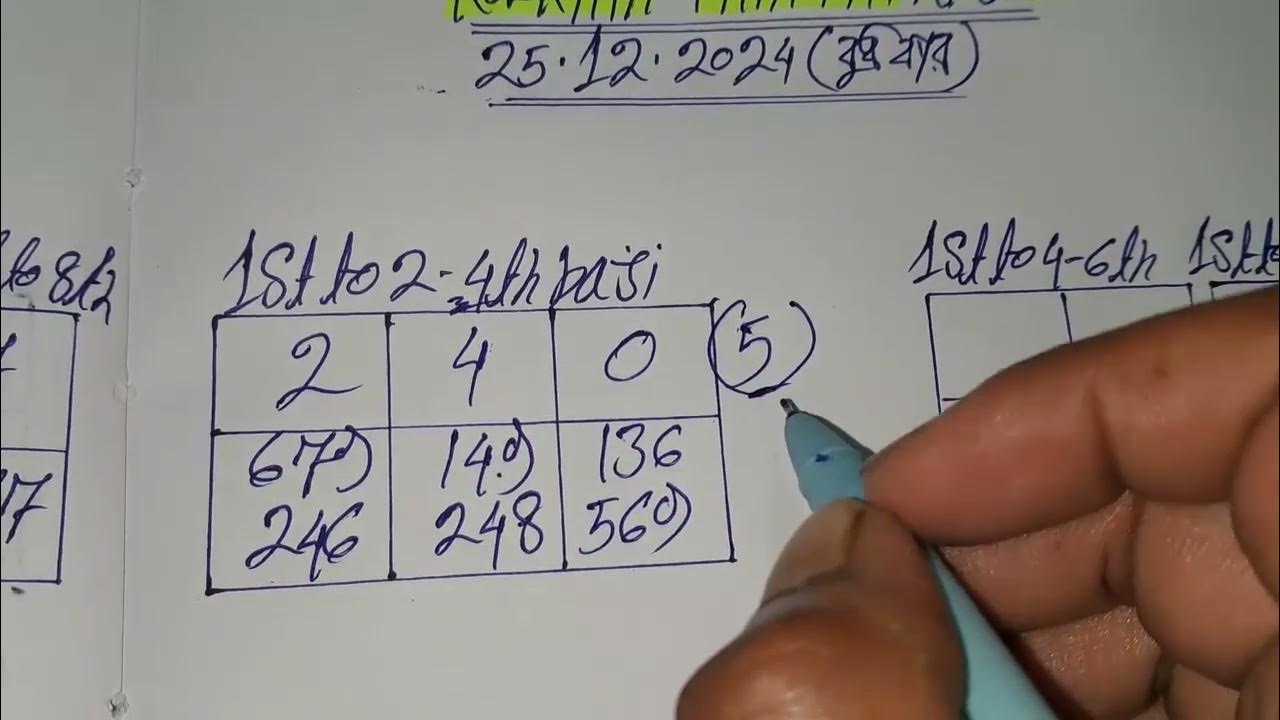 25.12.2024 (বুধবার)
to 8th
1st to 2-4th baji
1st to 4-6th
1st to
2 4 0 (5)
670) 140) 136
246 248 560)